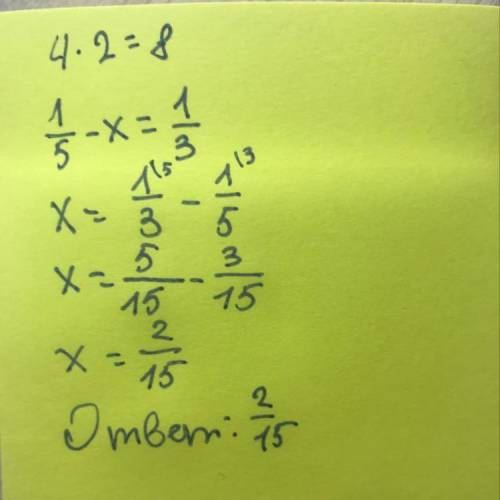 4 · 2 = 8
1/5 - x = 1/3
x = 1/3 ⁽⁵ - 1/5 ⁽³
x = 5/15 - 3/15
x = 2/15
Ответ: 2/15